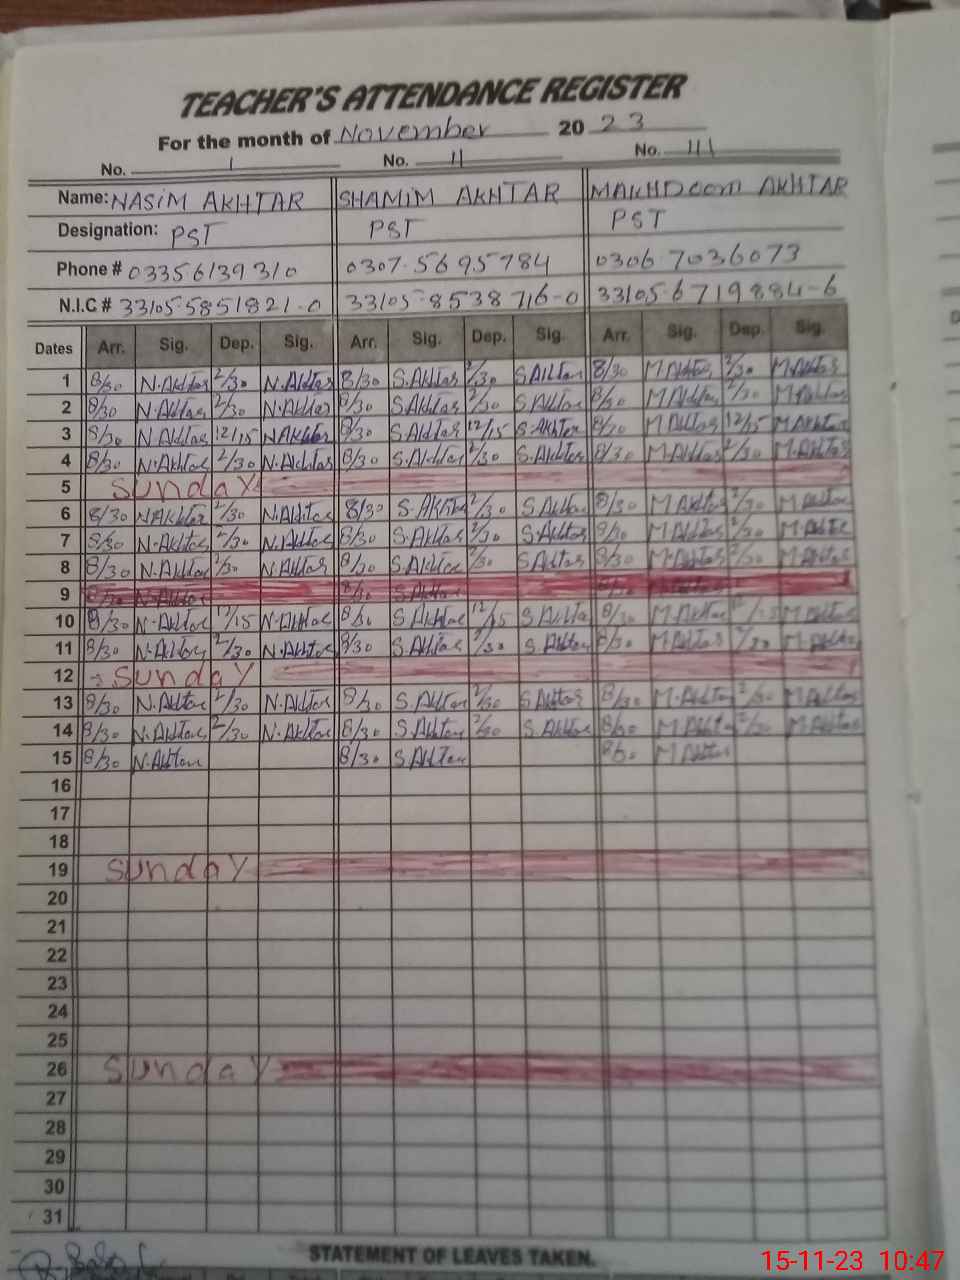 TEACHER'S ATTENDANCE REGISTER
For the month of November 2023
No. I No. II No. III
Name: NASIM AKHTAR SHAMIM AKHTAR MAKHDOOM AKHTAR
Designation: PST PST PST
Phone # 03356139310 0307-5695784 0306 7036073
N.I.C # 33105-5851821-0 33105-8538716-0 33105-6719884-6
Dates Arr. Sig. Dep. Sig. Arr. Sig. Dep. Sig. Arr. Sig. Dep. Sig.
1 8/30 N.Akhtar 2/30 N.Akhtar 8/30 S.Akhtar 2/30 S Akhtar 8/30 M.Akhtar 2/30 M.Akhtar
2 8/30 N.Akhtar 2/30 N.Akhtar 8/30 S.Akhtar 2/30 S.Akhtar 8/30 M.Akhtar 2/30 M.Akhtar
3 8/30 N.Akhtar 12/15 N Akhtar 8/30 S.Akhtar 12/15 S.Akhtar 8/30 M.Akhtar 12/15 M.Akhtar
4 8/30 N.Akhtar 2/30 N.Akhtar 8/30 S.Akhtar 2/30 S.Akhtar 8/30 M.Akhtar 2/30 M.Akhtar
5 Sunday
6 8/30 N Akhtar 2/30 N.Akhtar 8/30 S.Akhtar 2/30 S.Akhtar 8/30 M Akhtar 2/30 M.Akhtar
7 8/30 N.Akhtar 2/30 N.Akhtar 8/30 S.Akhtar 2/30 S.Akhtar 8/30 M.Akhtar 2/30 M.Akhtar
8 8/30 N.Akhtar 2/30 N.Akhtar 8/30 S.Akhtar 2/30 S.Akhtar 8/30 M.Akhtar 2/30 M.Akhtar
9 8/30 N.Akhtar 8/30 S.Akhtar 8/30
10 8/30 N.Akhtar 12/15 N.Akhtar 8/30 S.Akhtar 12/15 S.Akhtar 8/30 M.Akhtar 12/15 M.Akhtar
11 8/30 N.Akhtar 2/30 N.Akhtar 8/30 S.Akhtar 2/30 S.Akhtar 8/30 M.Akhtar 2/30 M.Akhtar
12 Sunday
13 8/30 N.Akhtar 2/30 N.Akhtar 8/30 S.Akhtar 2/30 S Akhtar 8/30 M.Akhtar 2/30 M.Akhtar
14 8/30 N.Akhtar 2/30 N.Akhtar 8/30 S.Akhtar 2/30 S.Akhtar 8/30 M.Akhtar 2/30 M.Akhtar
15 8/30 N.Akhtar 8/30 S.Akhtar 8/30 M Akhtar
16
17
18
19 Sunday
20
21
22
23
24
25
26 Sunday
27
28
29
30
31
STATEMENT OF LEAVES TAKEN.
15-11-23 10:47